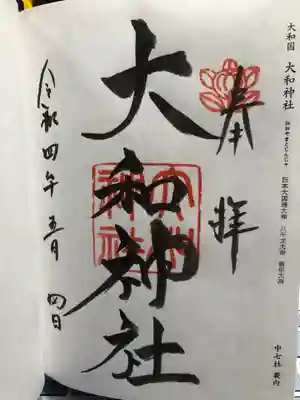 大和国 大和神社
おおやまとじんじゃ
日本大国魂大神 八千戈大神 御年大神
中七社 案内
奉拝
大和神社
大和
神社
令和四年五月四日